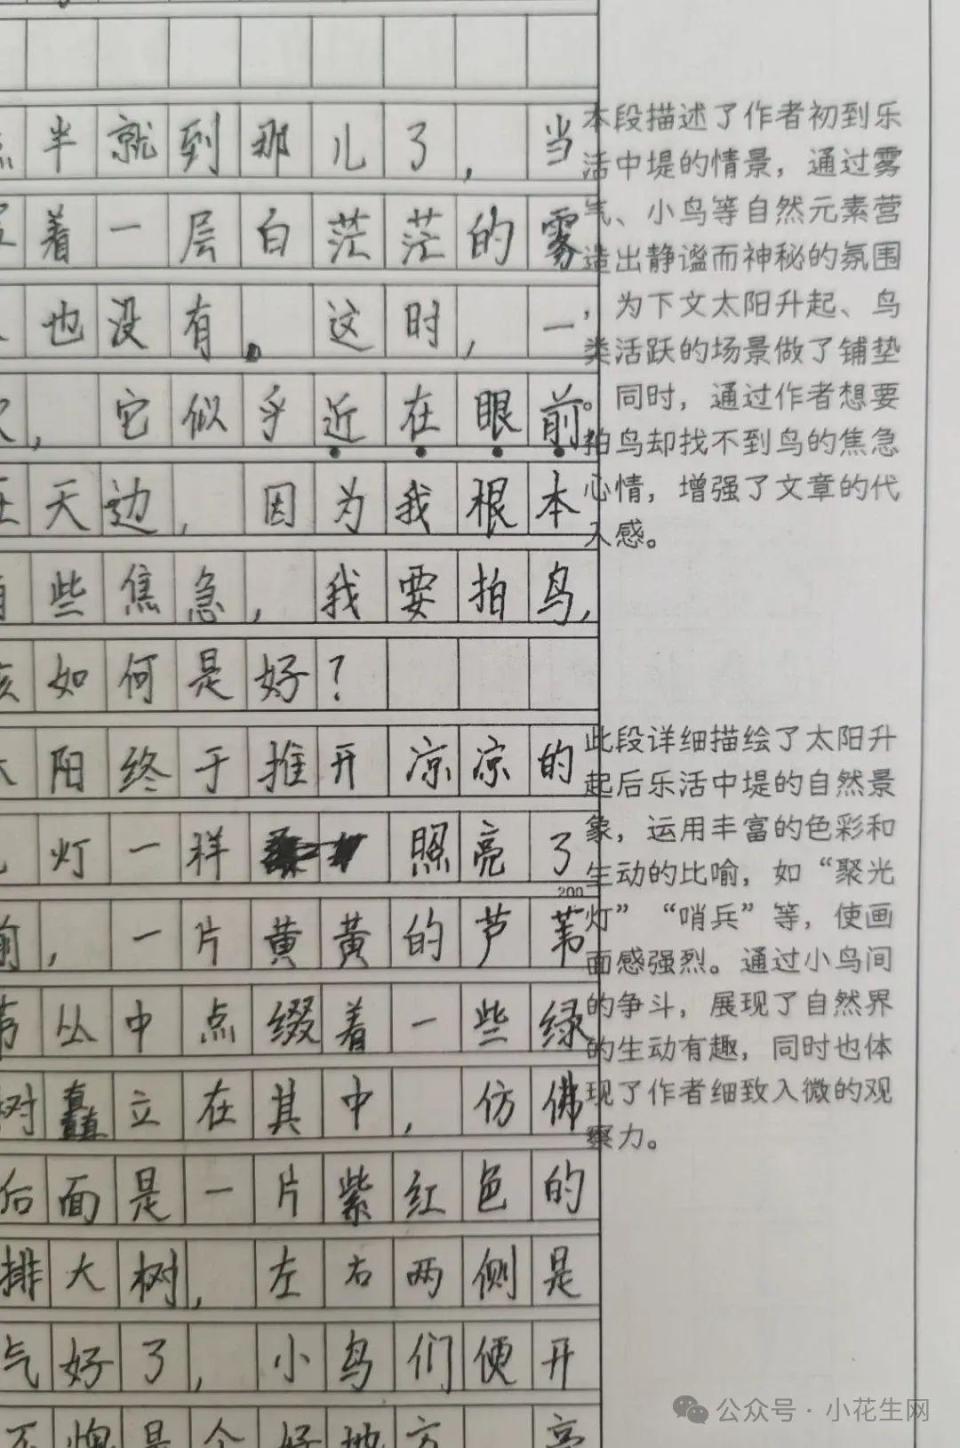 半就到那儿了，当
着一层白茫茫的雾
也没有。这时，一
，它似乎近在眼前
天边，因为我根本
些焦急，我要拍鸟，
如何是好？
阳终于推开凉凉的
灯一样照亮了
200
，一片黄黄的芦苇
丛中点缀着一些绿
树矗立在其中，仿佛
后面是一片紫红色的
排大树，左右两侧是
气好了，小鸟们便开
不愧是个好地方
本段描述了作者初到乐
活中堤的情景，通过雾
气、小鸟等自然元素营
造出静谧而神秘的氛围
，为下文太阳升起、鸟
类活跃的场景做了铺垫
。同时，通过作者想要
拍鸟却找不到鸟的焦急
心情，增强了文章的代
入感。
此段详细描绘了太阳升
起后乐活中堤的自然景
象，运用丰富的色彩和
生动的比喻，如“聚光
灯”“哨兵”等，使画
面感强烈。通过小鸟间
的争斗，展现了自然界
的生动有趣，同时也体
现了作者细致入微的观
察力。
公众号·小花生网